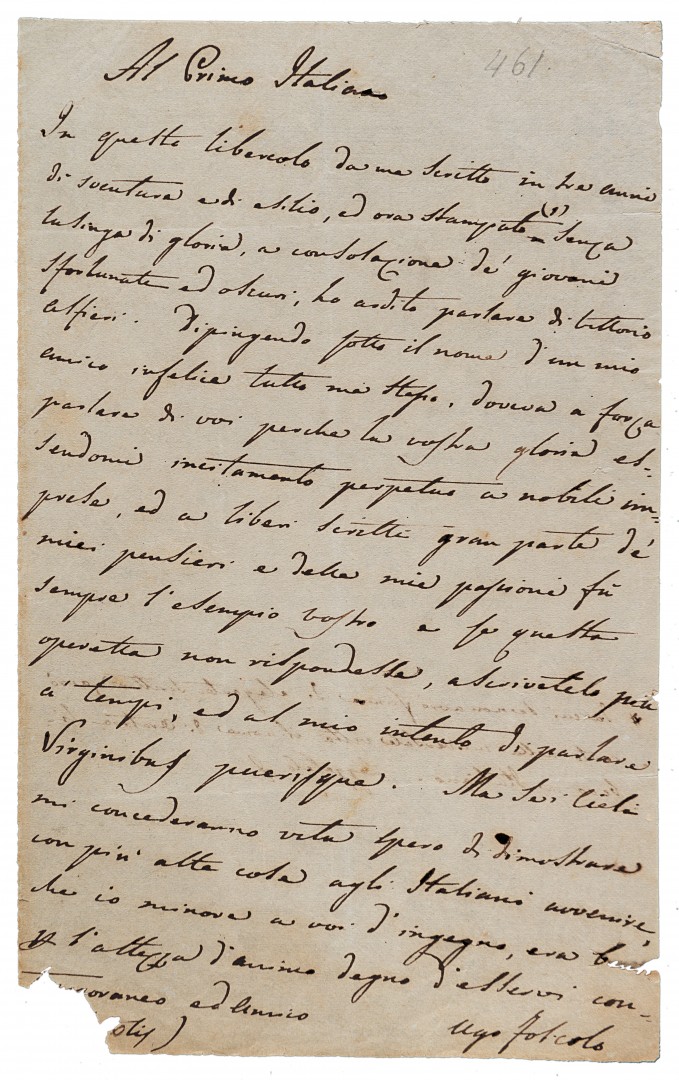 461.
Al Primo Italiano
In questo libercolo da me scritto in tre anni
di sventura e di esilio, ed ora stampato (1) senza
lusinga di gloria, a consolazione de' giovani
sfortunati ed oscuri, ho ardito parlare di Vittorio
Alfieri. Dipingendo sotto il nome d'un mio
amico infelice tutto me stesso, doveva a forza
parlare di voi perche la vostra gloria es-
sendomi incitamento perpetuo a nobili im-
prese, ed a liberi scritti gran parte de'
miei pensieri e delle mie passioni fù
sempre l'esempio vostro e se questa
operetta non rispondesse, ascrivetelo più
a' tempi, ed al mio intento di parlare
Virginibus puerisque. Ma se i Cieli
mi concederanno vita spero di dimostrare
con più alte cose agli Italiani avvenire,
che io minore a voi d'ingegno, era ben
p l'altezza d'animo degno d'esservi con-
temporaneo ed amico
Ugo Foscolo